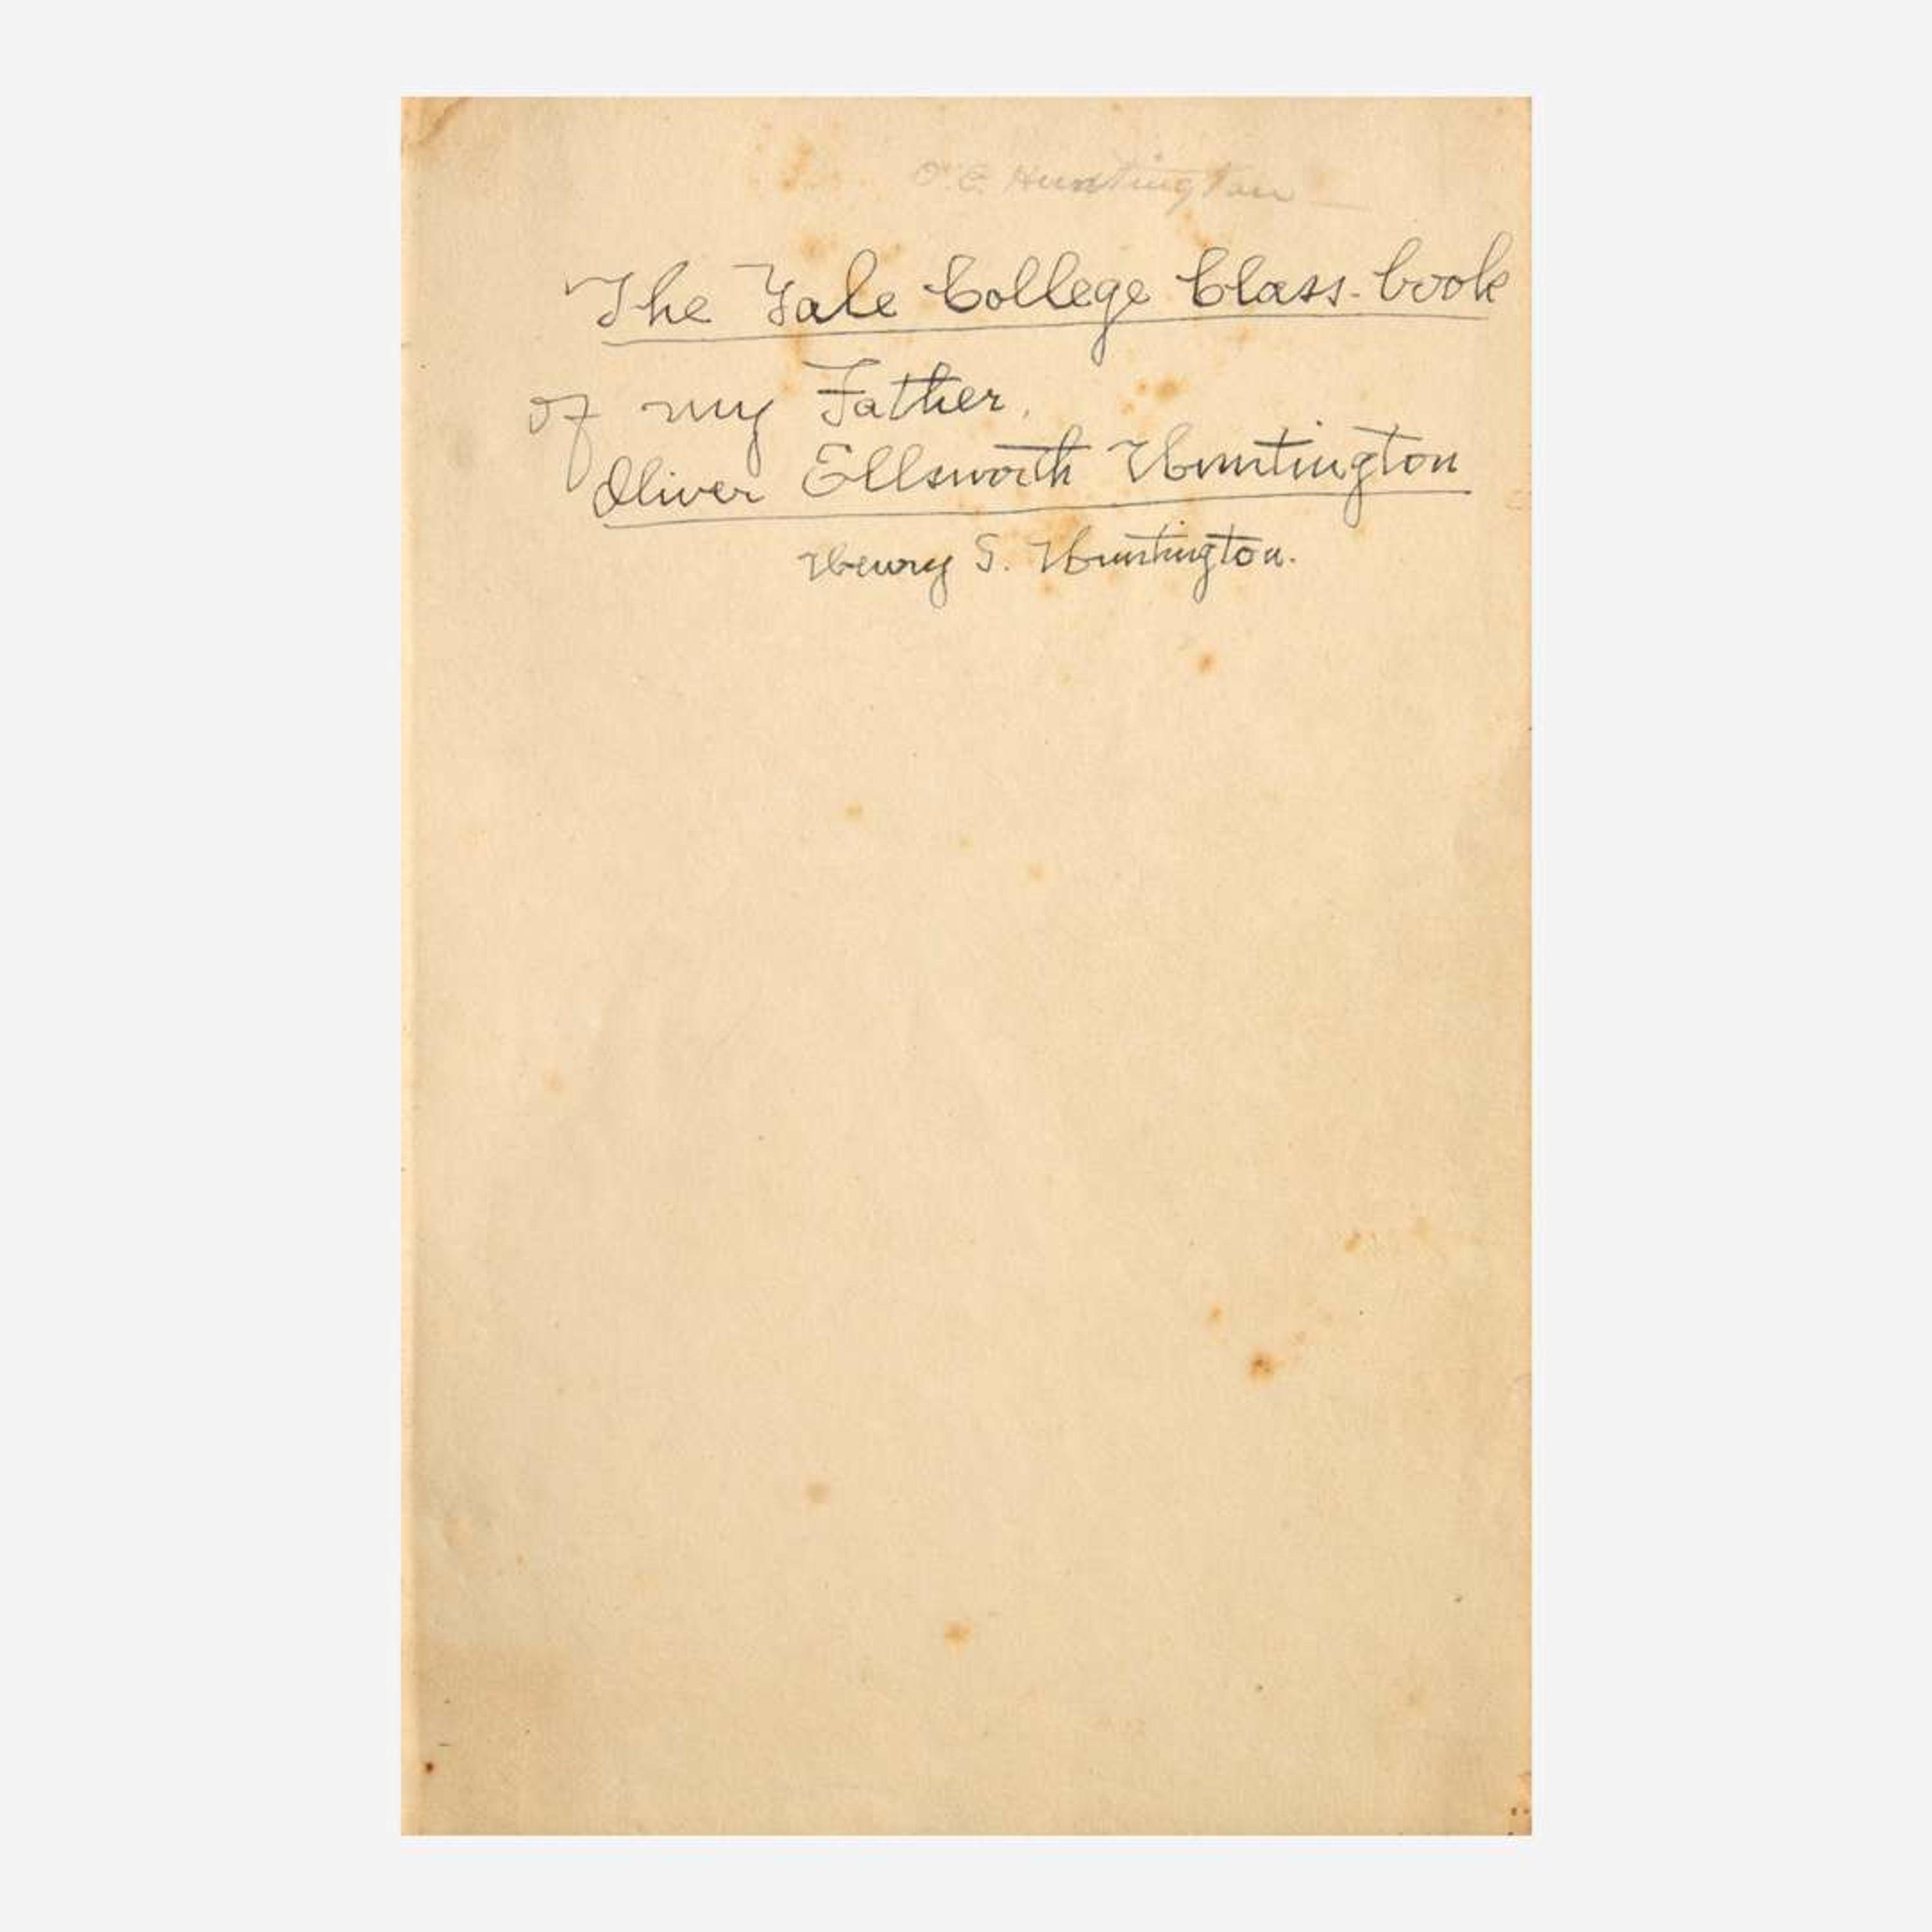 O. E. Huntington
The Yale College Class-book
of my Father,
Oliver Ellsworth Huntington
Henry S. Huntington.